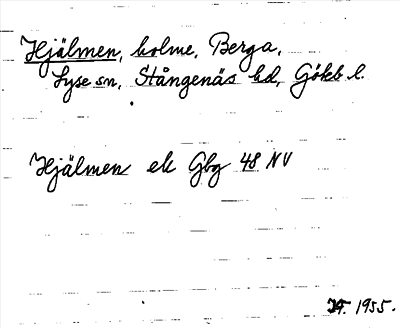 Hjälmen, holme, Berga,
Lyse sn, Stångenäs hd, Gobb l.
Hjälmen ek Gbg 48 NV
1955.